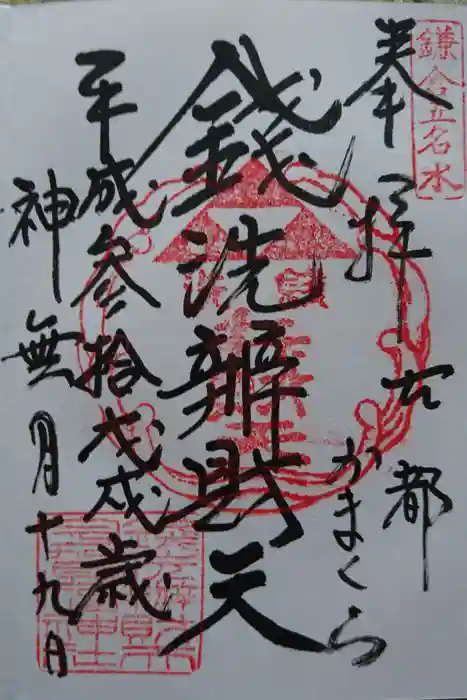 鎌倉五名水
奉拝
古都
かまくら
銭洗辨財天
平成参拾戊戌歳
神無月十九日